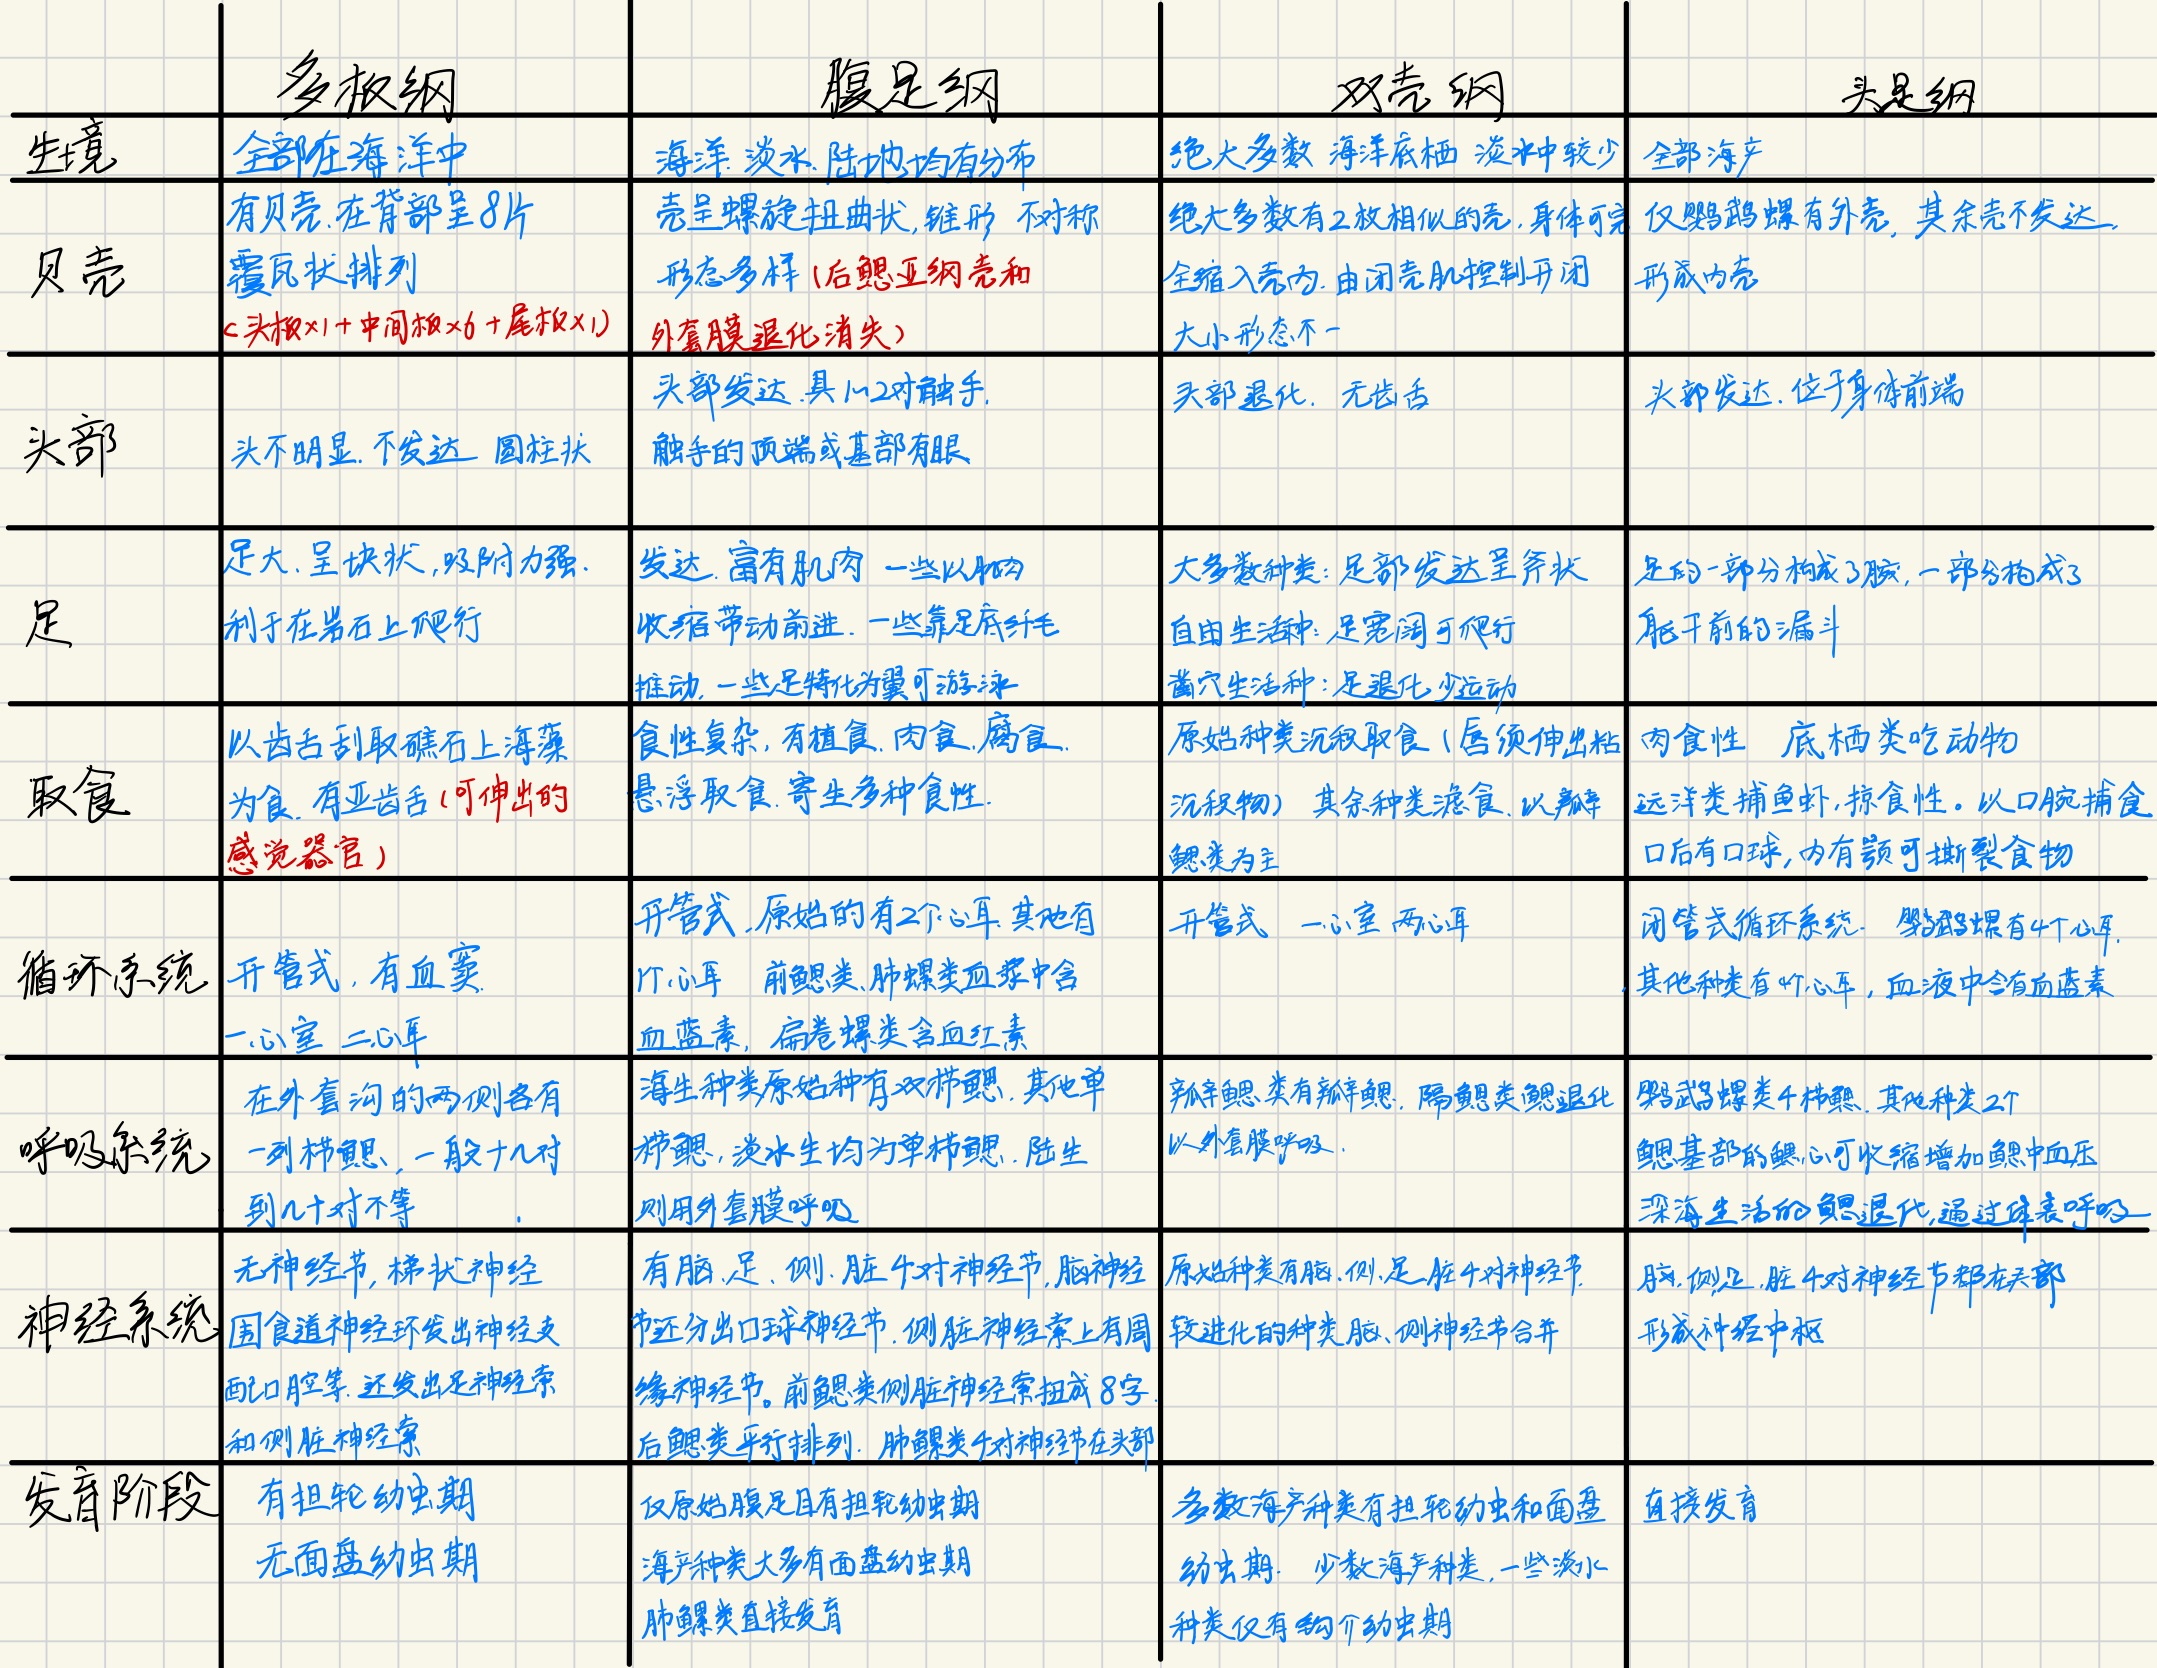 多板纲
腹足纲
双壳纲
头足纲
生境
全部在海洋中
海洋.淡水.陆地均有分布
绝大多数 海洋底栖 淡水中较少
全部海产
贝壳
有贝壳.在背部呈8片
覆瓦状排列
(头板×1+中间板×6+尾板×1)
壳呈螺旋扭曲状,锥形 不对称
形态多样(后鳃亚纲壳和
外套膜退化消失)
绝大多数有2枚相似的壳.身体可完
全缩入壳内.由闭壳肌控制开闭
大小形态不一
仅鹦鹉螺有外壳,其余壳不发达.
形成内壳
头部
头不明显.不发达 圆柱状
头部发达.具1~2对触手.
触手的顶端或基部有眼
头部退化. 无齿舌
头部发达.位于身体前端
足
足大.呈块状,吸附力强.
利于在岩石上爬行
发达.富有肌肉 一些以肌肉
收缩带动前进.一些靠足底纤毛
推动.一些足特化为翼可游泳
大多数种类:足部发达呈斧状
自由生活种:足宽阔可爬行
凿穴生活种:足退化少运动
足的一部分构成了腕,一部分构成了
躯干前的漏斗
取食
以齿舌刮取礁石上海藻
为食.有亚齿舌(可伸出的
感觉器官)
食性复杂,有植食.肉食.腐食.
悬浮取食.寄生多种食性.
原始种类沉积取食(唇须伸出粘
沉积物) 其余种类滤食.以瓣
鳃类为主
肉食性 底栖类吃动物
远洋类捕鱼虾,掠食性。以口腕捕食
口后有口球,内有颚可撕裂食物
循环系统
开管式,有血窦.
一心室 二心耳
开管式,原始的有2个心耳.其他有
1个心耳 前鳃类、肺螺类血浆中含
血蓝素, 扁卷螺类含血红素
开管式 一心室 两心耳
闭管式循环系统. 鹦鹉螺有4个心耳.
其他种类有个心耳,血液中含有血蓝素
呼吸系统
在外套沟的两侧各有
一列栉鳃,一般十几对
到几十对不等
海生种类原始种有双栉鳃.其他单
栉鳃,淡水生均为单栉鳃.陆生
则用外套膜呼吸
瓣鳃类有瓣鳃.隔鳃类鳃退化
以外套膜呼吸.
鹦鹉螺类4栉鳃.其他种类2个
鳃基部的鳃心可收缩增加鳃中血压
深海生活的鳃退化,通过体表呼吸
神经系统
无神经节,梯状神经
围食道神经环发出神经支
配口腔等.还发出足神经索
和侧脏神经索
有脑、足、侧.脏4对神经节,脑神经
节还分出口球神经节.侧脏神经索上有周
缘神经节。前鳃类侧脏神经索扭成8字.
后鳃类平行排列.肺螺类4对神经节在头部
原始种类有脑.侧.足.脏4对神经节.
较进化的种类脑、侧神经节合并
脑.侧.足.脏4对神经节都在头部
形成神经中枢
发育阶段
有担轮幼虫期
无面盘幼虫期
仅原始腹足目有担轮幼虫期
海产种类大多有面盘幼虫期
肺螺类直接发育
多数海产种类有担轮幼虫和面盘
幼虫期. 少数海产种类,一些淡水
种类仅有钩介幼虫期
直接发育